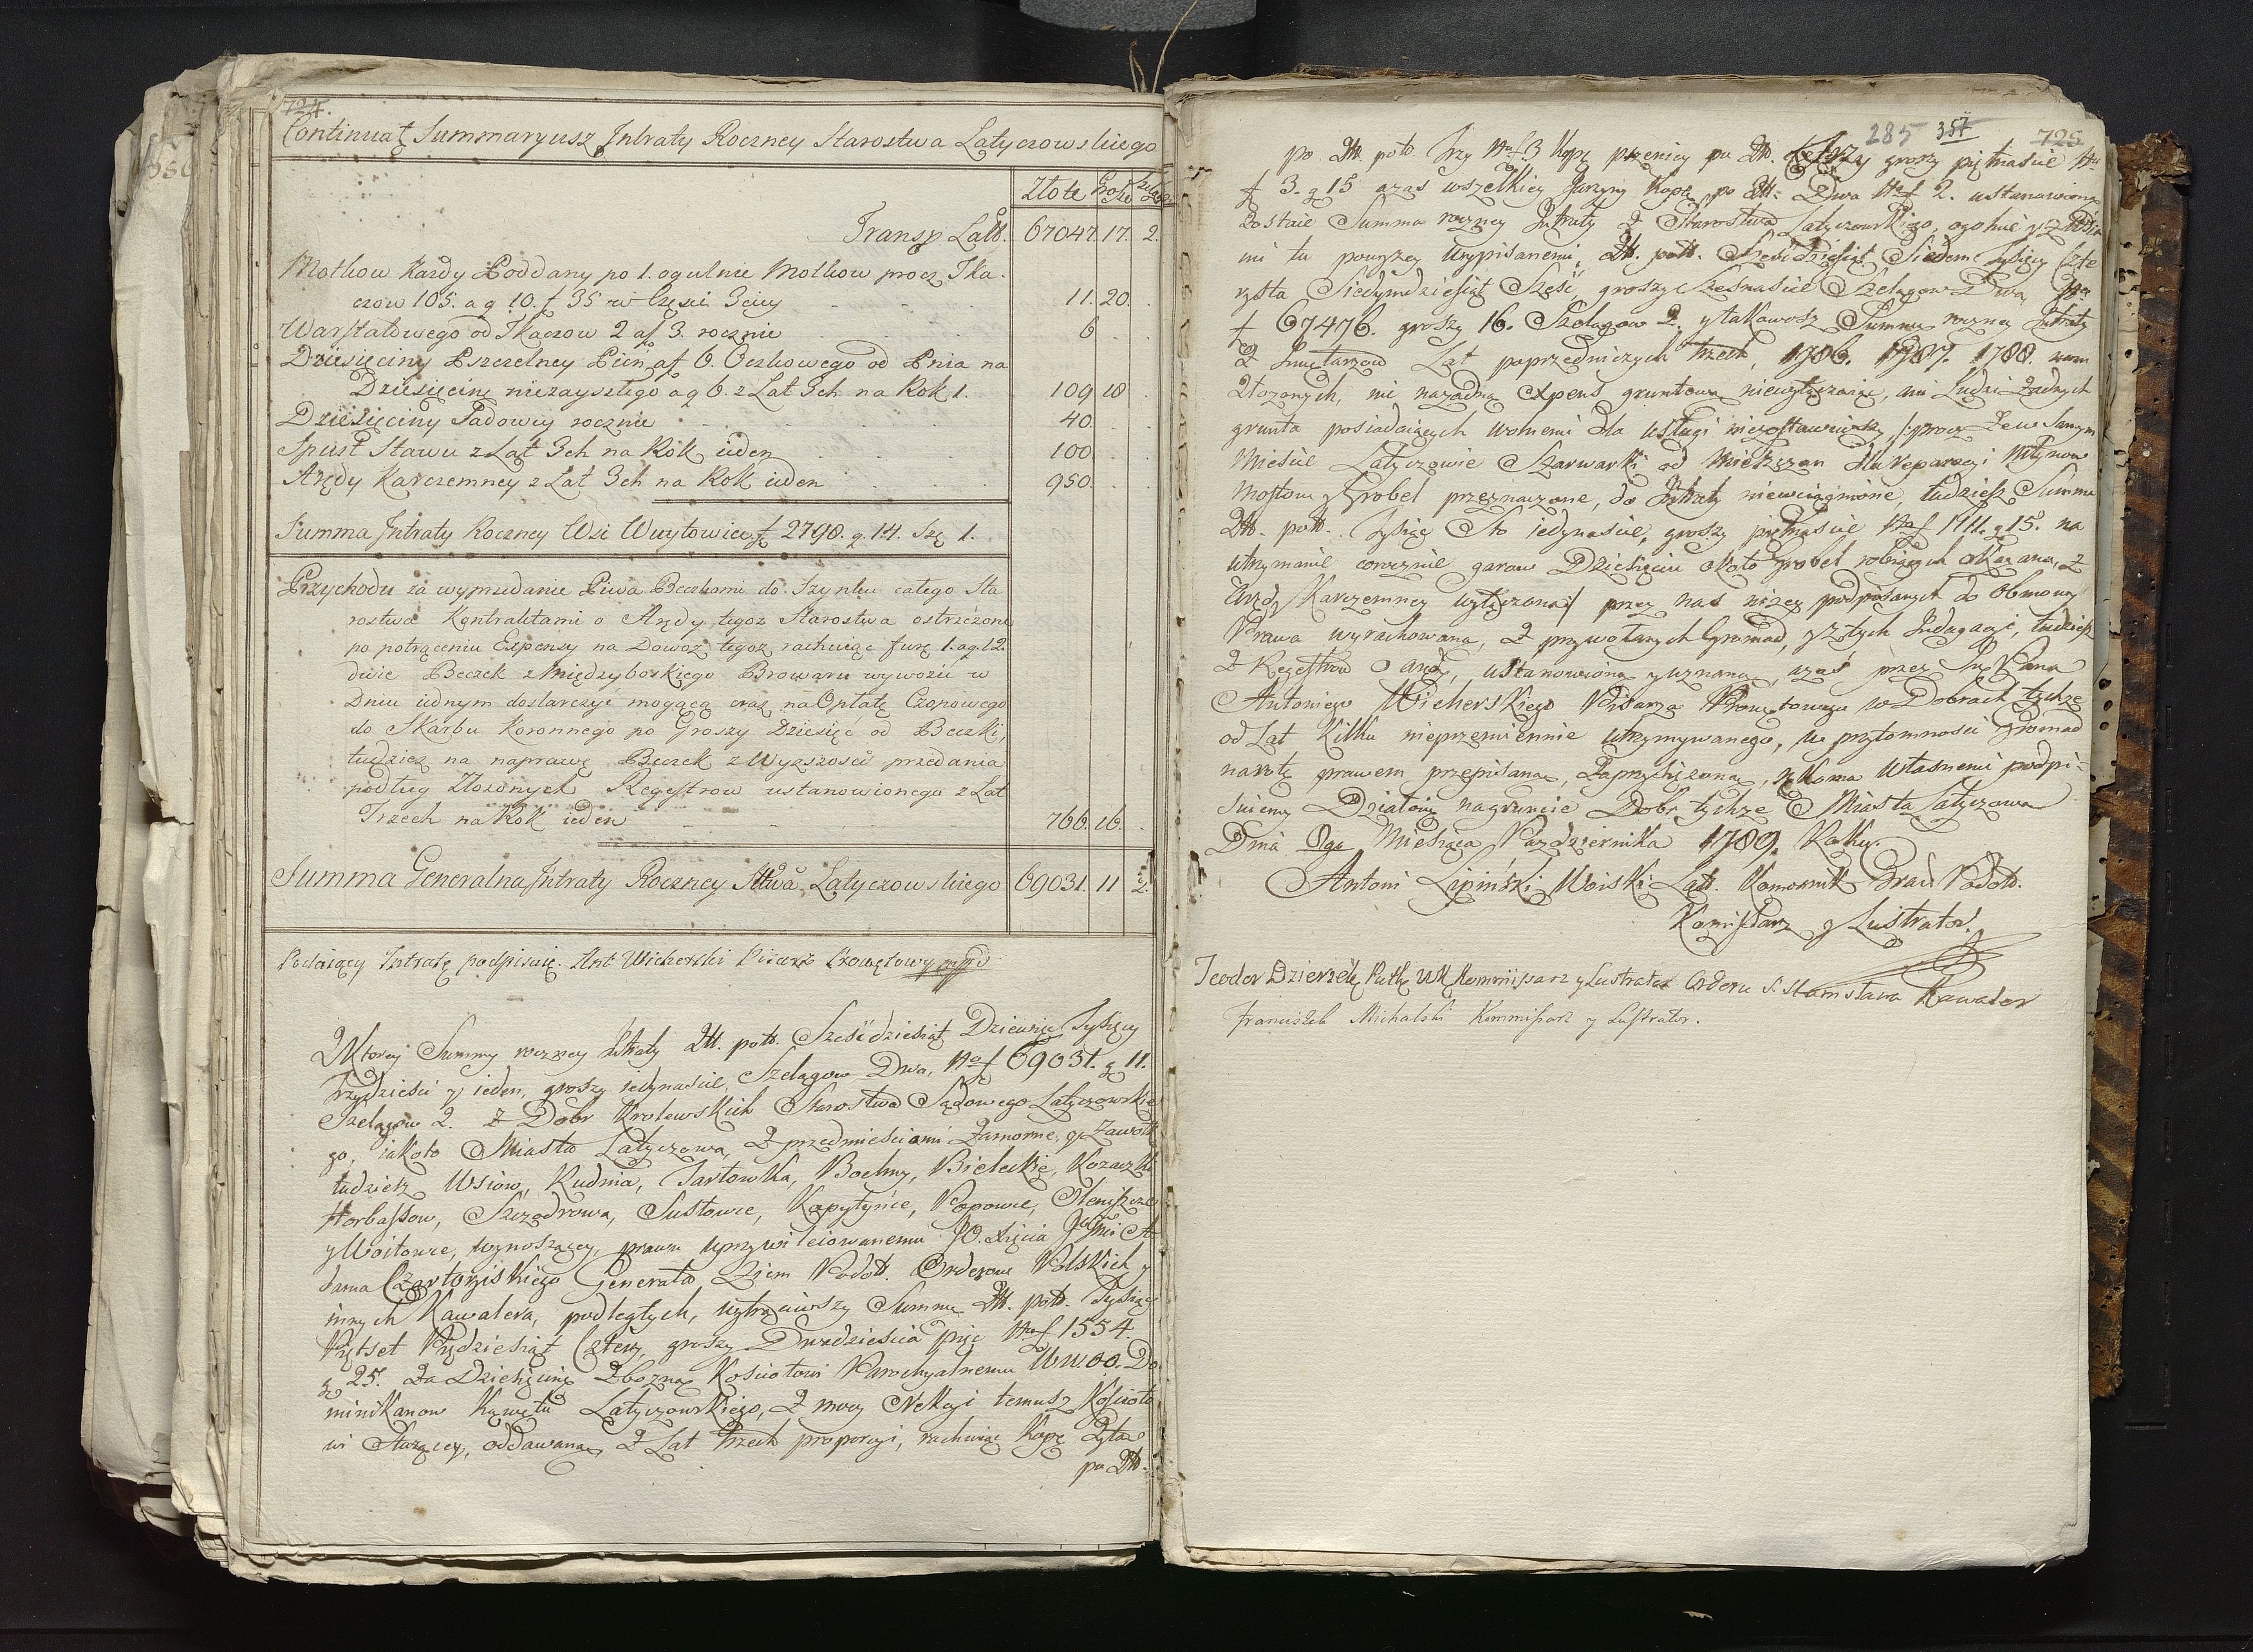 724.
Continuat Summaryusz Jntraty Roczney Starostwa Latyczowskiego
Złote Grosze
Transp Latt. 67047. 17. 2.
Motkow Kazdy Poddany po 1. ogulnie Motkow procz Tka-
czow 105. a g 10. f 35 w Częsci 3ciey 11. 20.
Warsztatowego od Tkaczow 2 af 3. rocznie 6
Dziesięciny Pszczelney Pień af 6. Oczkowego od Pnia na
Dziesięcinę niezayszłego a g 6. z Lat 3ch na Rok 1. 109 18
Dziesięciny Sadowey rocznie 40.
Spust Stawu z Lat 3ch na Rok ieden 100.
Arędy Karczemney z Lat 3ch na Rok ieden 950.
Summa Jntraty Roczney Wsi Woytowiec f 2798. g. 14. Szę 1.
Przychodu za wyprzedanie Piwa Beczkami do Szynku całego Sta
rostwa Kontraktami o Arędy tegoz Starostwa ostrzeżone
po potrąceniu Expensy na Dowoz tegoz rachuiąc furę 1. ag. 12.
dwie Beczek z Międzyboskiego Browaru wywozić w
Dniu iednym dostarczyć mogącą oraz na Opłatę Czopowego
do Skarbu Koronnego po Groszy Dziesięć od Beczki,
tudziez na naprawę Beczek z Wyzszości przedania
podług Złozonych Regestrow ustanowionego z Lat
Trzech na Rok ieden 766. 16.
Summa Generalna Jntraty Roczney Sttwa Latyczowskiego 69031. 11 2.
Podaiący Jntratę podpisuię. Ant Wicherski Pisarz Prowętowy mpd
Z Ktorey Summy roczney Jntraty Złł. poll. Sześćdziesiąt Dziewięć Tysięcy
Trzydzieści y ieden, groszy iedynaście, Szelągow Dwa, No f 69031. g 11.
Szelągow 2. z Dobr Krolewskich Starostwa Sądowego Latyczowskie
go, iakoto Miasta Latyczowa, Z przedmieściami Zamornie, y Zawołk
tudziesz Wsiow, Rudnia, Jarłowka, Bochny, Bieleckie, Kozaczki
Horbassow, Szczodrowa, Susłowce, Kopytyńce, Popowce, Oleniszcze
y Woitowce, wynoszącey, prawu uprzywileiowanemu JO. Xięcia Jmci A
dama Czartoryiskiego Generała Ziem Podoll. Orderow Polskich y
innych Kawalera, podległych, wytrąciwszy Summę Złł. poll. Tysiąc
Pięćset Pięćdziesiąt Cztery, groszy Dwadzieścia pięć No f 1554.
g 25. Za Dziesięcinę Zbozną Kościołowi Parochyalnemu WW. OO. Do
minikanow Kąwętu Latyczowskiego, Z mocy Erekcyi temusz Kościoło
wi Służącey, oddawaną, Z Lat Trzech proporcyi, rachuiąc Kopę Zyta
po Złł.
285 357 725
po Złł. poll. Trzy No f 3 Kopę pszenicy po Złł. Trzy groszy piętnaście No
f 3. g 15 azas wszelkiey Jarzyny Kopę po Złł. Dwa No f 2. ustanowioną
zostaie Summa roczney Jntraty Z Starostwa Latyczowskiego, ogolnie z Wsia
mi tu powyzey wypisanemi, Złł. poll. Sześćdziesiąt Siedem Tysięcy Czte
rysta Siedymdziesiąt Sześć, groszy Szesnaście Szelągow Dwa, No
f 67476. groszy 16. Szelągow 2. y takowosz Summę roczney Jntraty
Z Jnwętarzow Lat poprzedniczych trzech, 1786. 1787. 1788. nam
złozonych, nic nazadną Expens gruntową niewytrącaiąc, ani Ludzi zadnych
grunta posiadaiących wolnemi dla usługi niezostawuiąc, /: procz ze w Samym
Mieście Latyczowie Szarwarki od Mieszczan dla reparacyi Młynow
Mostow y Grobel przeznaczone, do Jntraty niewciągnione, tudziesz Summa
Złł. poll. Tysiąc Sto iedynaście, groszy piętnaście No f 1111. g 15. na
utrzymanie corocznie garow Dziesięciu około Grobel robiących Okazana, z
Arędy Karczemney wytrącona :/ przez nas nizey podpisanych do obmowy
Prawa wyrachowana, Z przywołanych Gromad, y z tych Jndagacyi, tudziesz
Z Regestrow o arędy, ustanowiona y uznana, azaś przez Jm Pana
Antoniego Wicherskiego Pisarza Prowętowego w Dobrach tychze
od Lat Kilku nieprzemiennie utrzymywanego, w przytomności Gromad
narotę prawem przepisaną, Zaprzysięzoną, rękoma własnemi podpi-
suiemy Działo się nagruncie Dobr tychze Miasta Latyczowa
Dnia 8go Miesiąca Pazdziernika 1789. Roku.
Antoni Lipiński Woiski Latt. Komornik Gran Podoll.
Komissarz y Lustrator.
Teodor Dzierzek Putk WK Kommissarz y Lustrator Orderu S. Stanisława Kawaler
Franciszek Michalski Kommissarz y Lustrator.